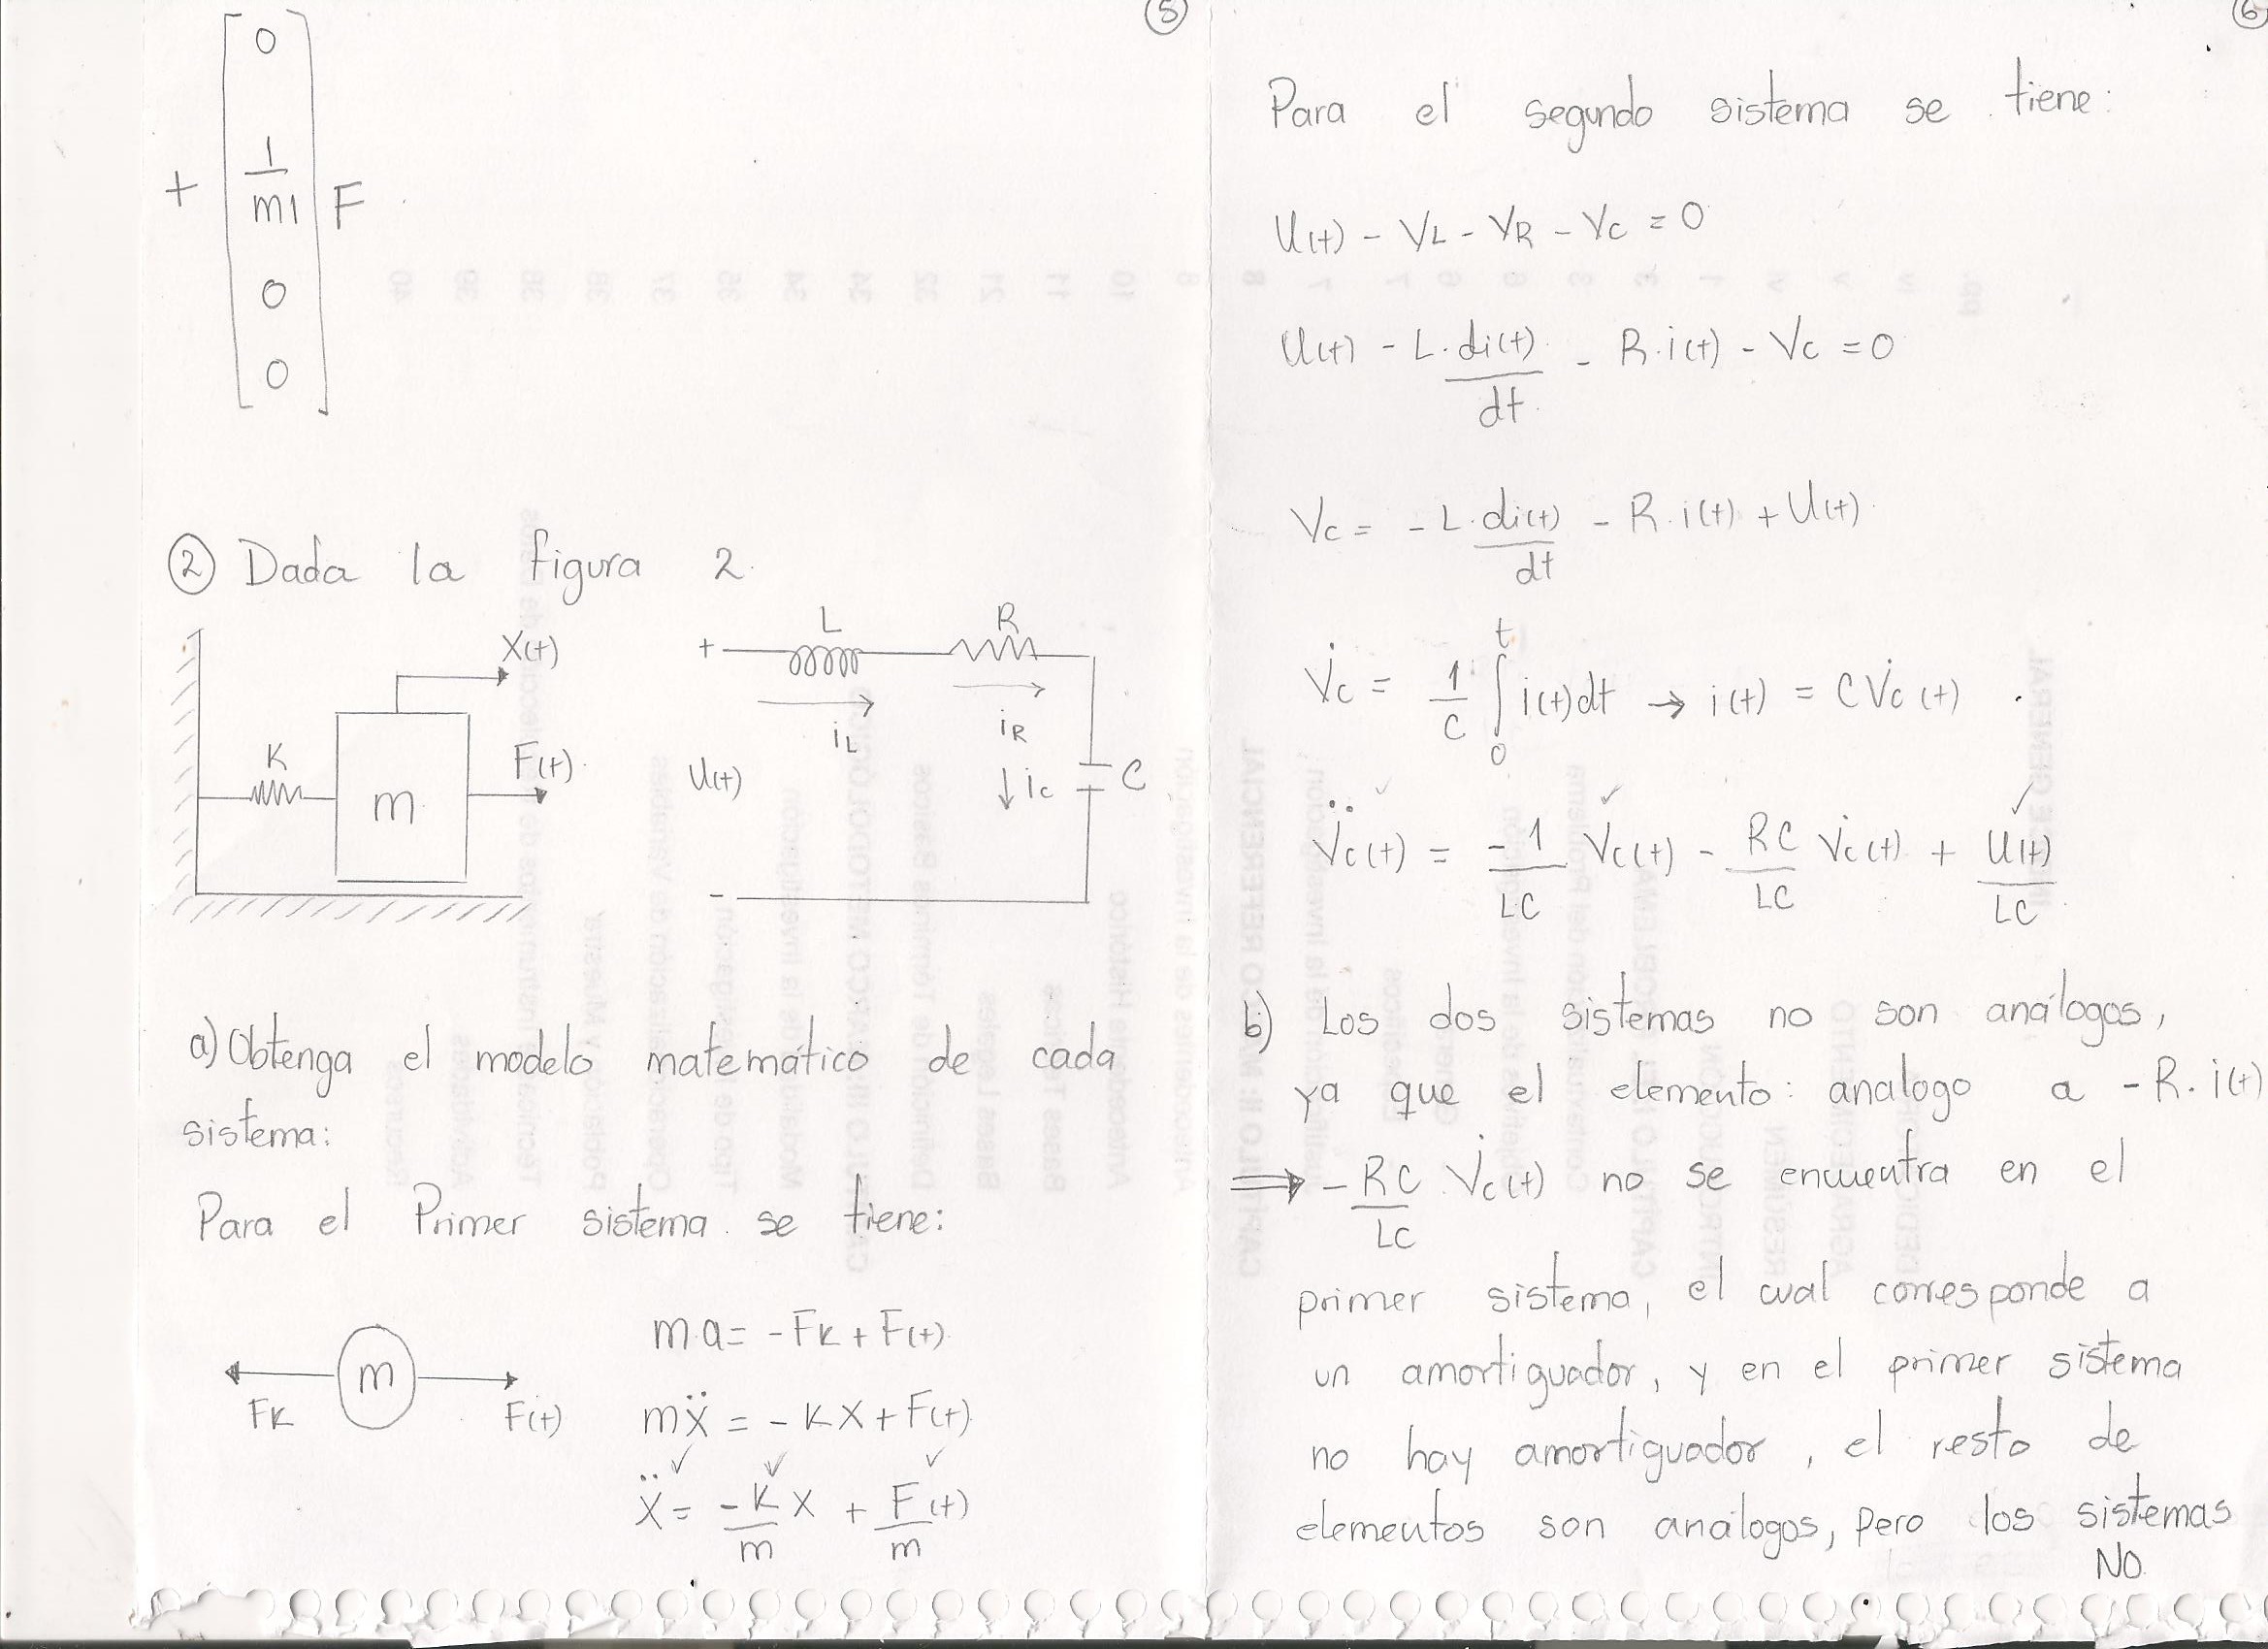 5
0
1
+ m1 F
0
0
② Dada la figura 2.
X(t)
K
m
F(t)
L
R
+
iL
iR
U(t)
ic
C
-
a) Obtenga el modelo matemático de cada
sistema:
Para el Primer sistema se tiene:
m
FK
F(t)
m.a = -FK + F(t)
mẍ = -KX + F(t)
ẍ = -K/m X + F(t)/m
6
Para el segundo sistema se tiene:
U(t) - VL - VR - Vc = 0
U(t) - L.di(t)/dt - R.i(t) - Vc = 0
Vc = -L.di(t)/dt - R.i(t) + U(t)
V̇c = 1/C ∫₀ᵗ i(t)dt → i(t) = CV̇c(t)
V̈c(t) = -1/LC Vc(t) - RC/LC V̇c(t) + U(t)/LC
b) Los dos sistemas no son análogos,
ya que el elemento: analogo a -R.i(t)
⟹ -RC/LC V̇c(t) no se encuentra en el
primer sistema, el cual corresponde a
un amortiguador, y en el primer sistema
no hay amortiguador, el resto de
elementos son análogos, pero los sistemas
NO.